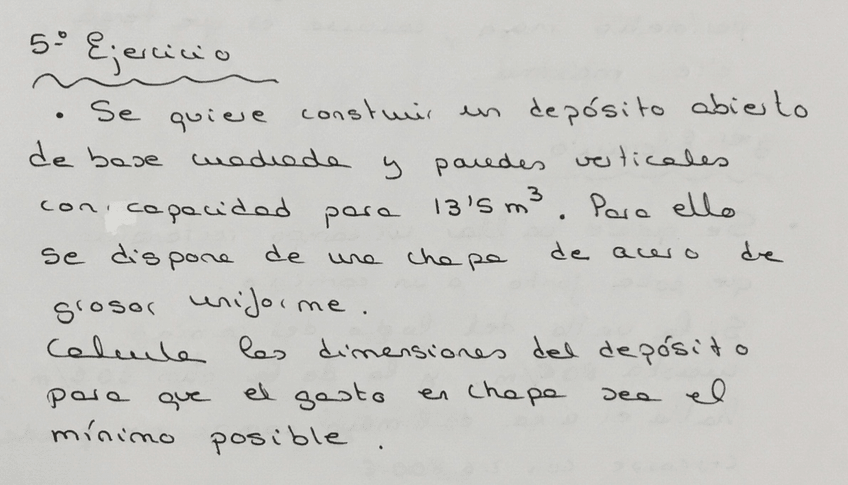 5º Ejercicio
• Se quiere construir un depósito abierto
de base cuadrada y paredes verticales
con capacidad para 13'5 m³. Para ello
se dispone de una chapa de acero de
grosor uniforme.
Calcula las dimensiones del depósito
para que el gasto en chapa sea el
mínimo posible.